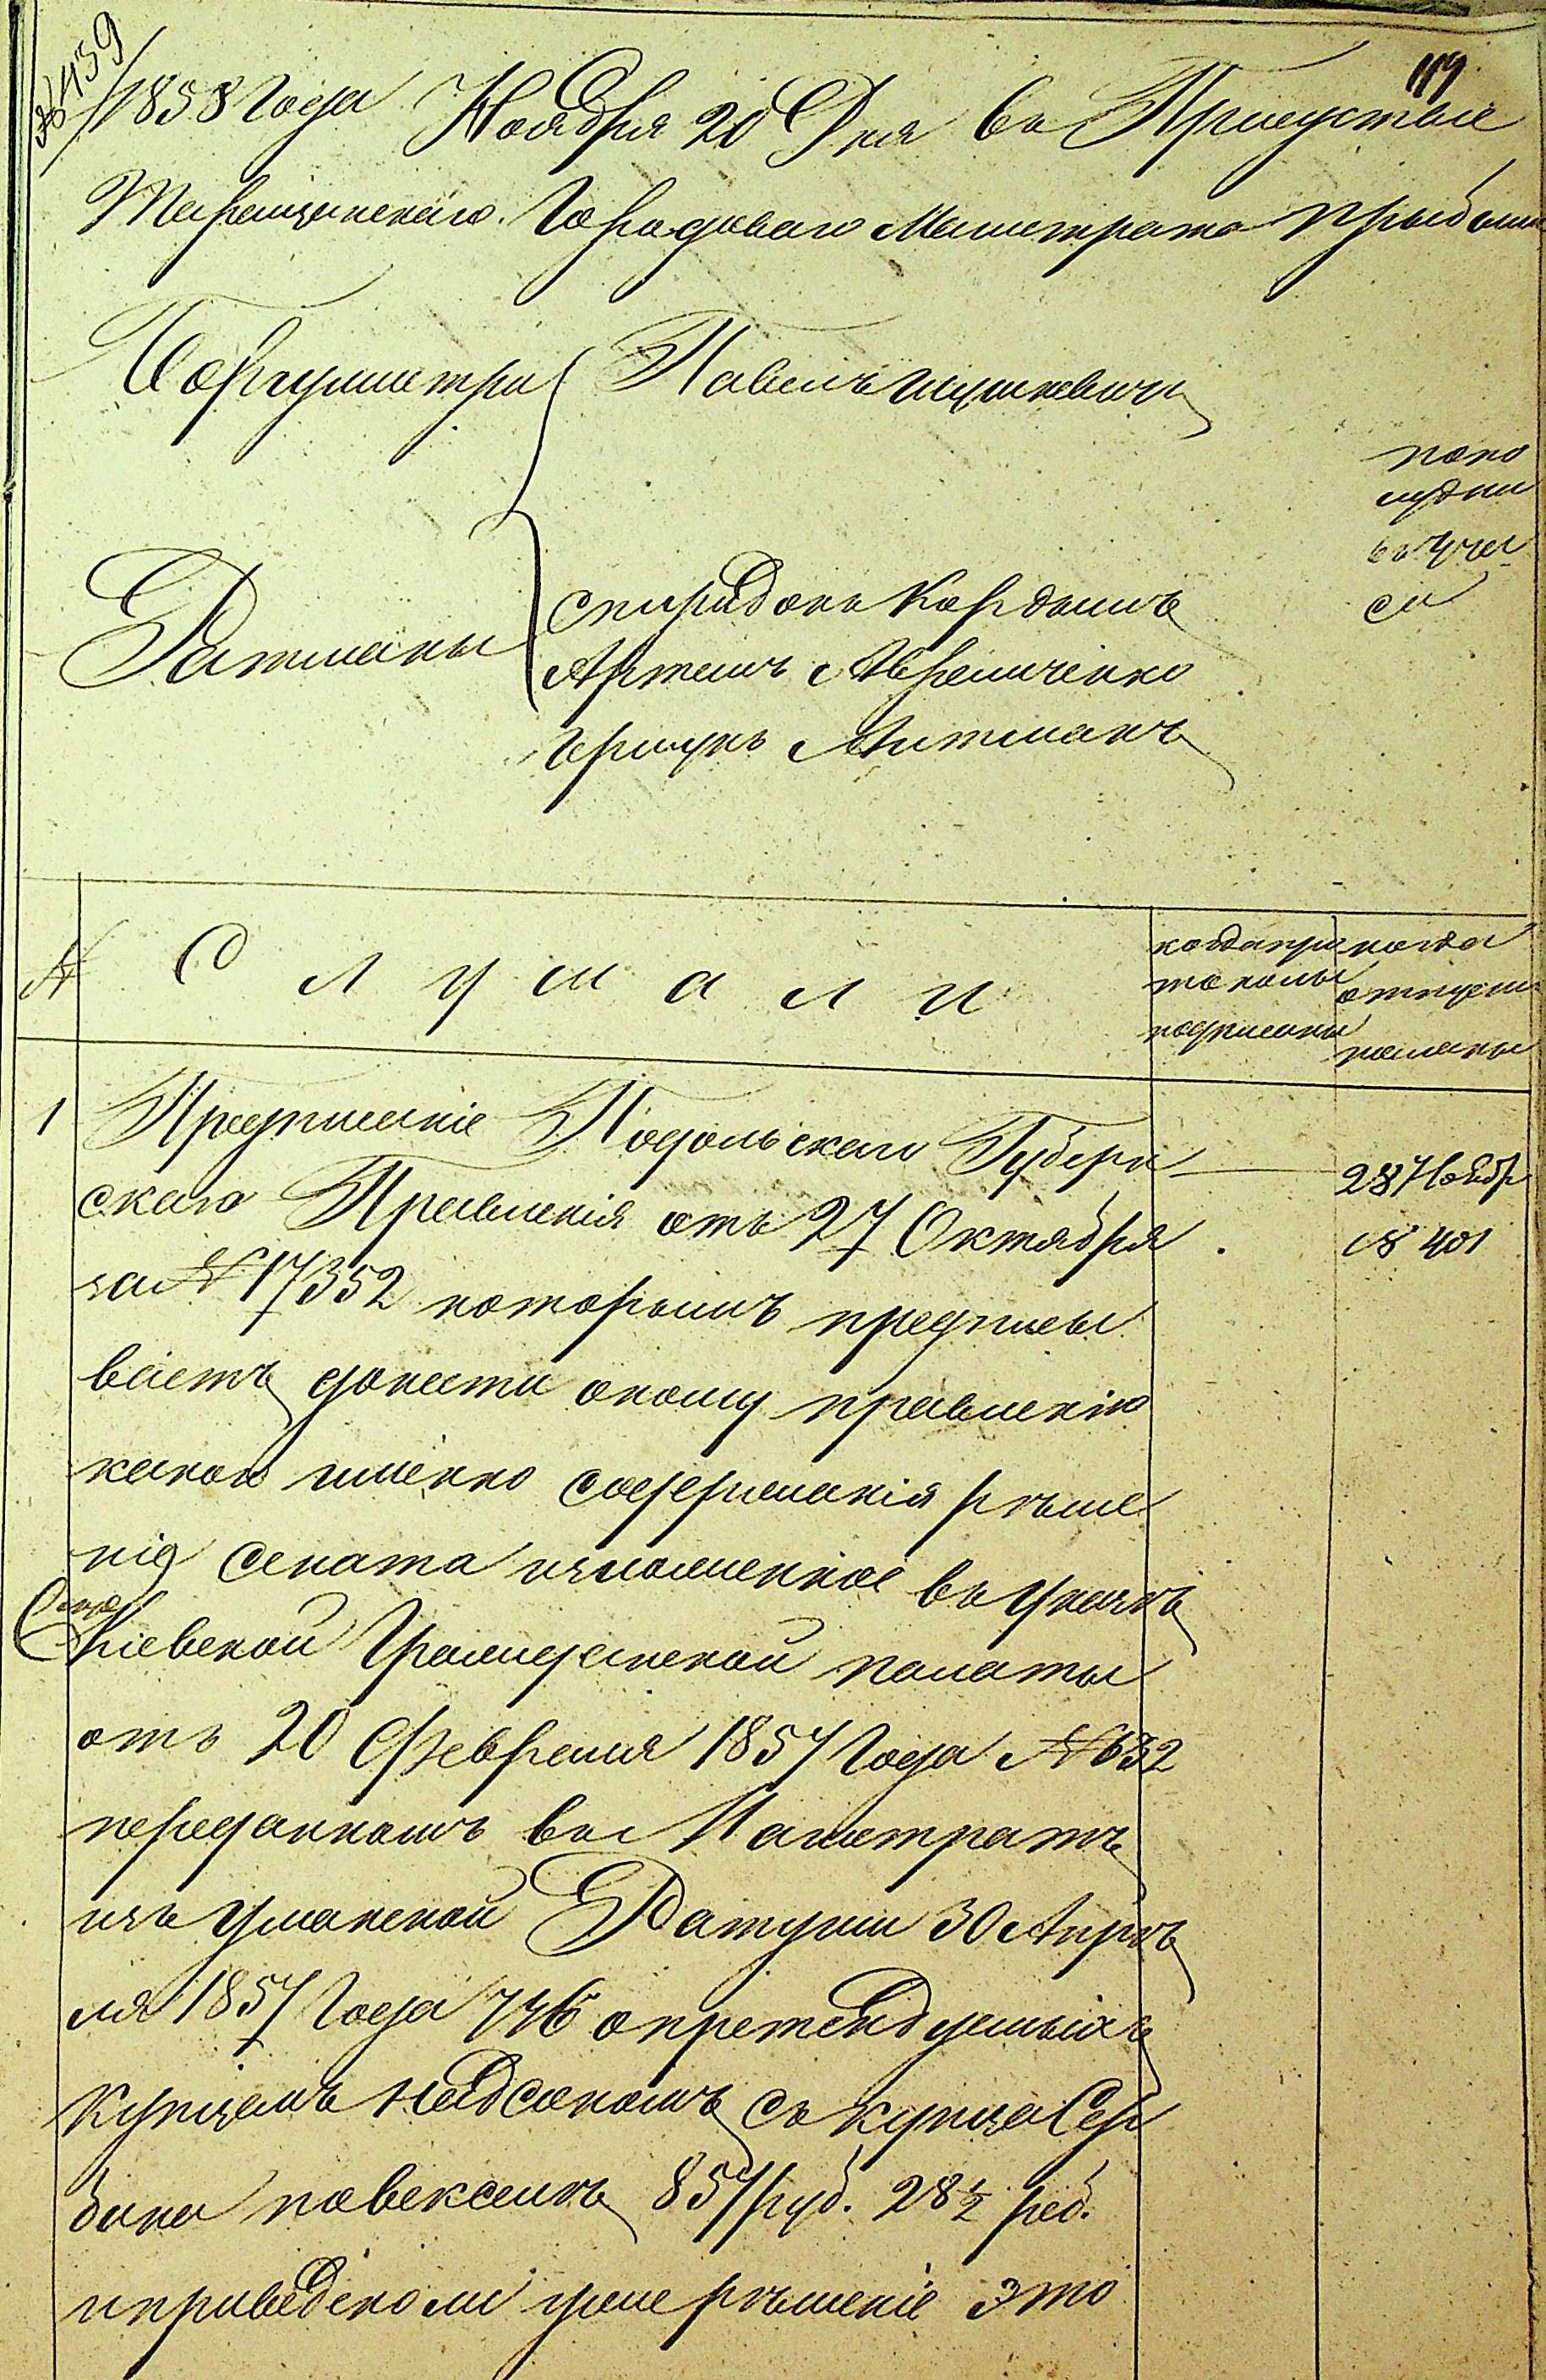 № 439
119
1858 Года Ноября 20 Дня въ Присуствіе
Таращанскаго Городоваго Магистрата прыбыли
Боргумистръ Павелъ
попо
лудни
въ 4 час
Ратманы Спиридонъ Кордышъ
Артемъ Авраменко
Гершунъ Литманъ
№ Слушали
когда про
токолы
подписаны
когда
отпуски
посланы
1 Предписаніе Подольскаго Губерн
скаго Правленія отъ 27 Октября
за № 17352 которымъ предписы
ваетъ донести оному правленію
какого именно содержанія рѣше
нія Сената изложенное въ Указѣ
Кіевской Гражданской палаты
отъ 20 Февраля 1857 Года № 632
переданномъ въ Магистратъ
изъ Уманской Ратуши 30 Апрѣ
ля 1857 Года 776 о претендуемыхъ
купцемъ Надсономъ съ купца Сер
бина по векселю 857 руб. 28 ½ реб.
и приведено ли уже рѣшеніе это
28 Ноябр
№ 401